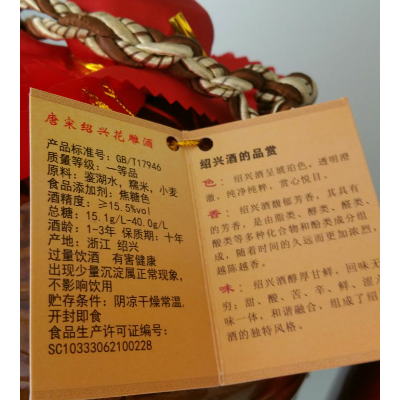 唐宋绍兴花雕酒
产品标准号: GB/T17946
质量等级: 一等品
原料: 鉴湖水, 糯米, 小麦
食品添加剂: 焦糖色
酒精度: ≥15.5%vol
总糖: 15.1g/L-40.0g/L
酒龄: 1-3年 保质期: 十年
产地: 浙江 绍兴
过量饮酒 有害健康
出现少量沉淀属正常现象,
不影响饮用
贮存条件: 阴凉干燥常温,
开封即食
食品生产许可证编号:
SC10333062100228
绍兴酒的品赏
色: 绍兴酒呈琥珀色, 透明澄
澈, 纯净纯粹, 赏心悦目。
香: 绍兴酒馥郁芳香, 其具有
的芳香, 是由脂类、醇类、醛类、
酸类等多种化合物和酚类成分组
成, 随着时间的久远而更加浓烈,
越陈越香。
味: 绍兴酒醇厚甘鲜, 回味无
穷: 甜、酸、苦、辛、鲜、涩
味一体, 和谐融合, 组成了绍
酒的独特风格。